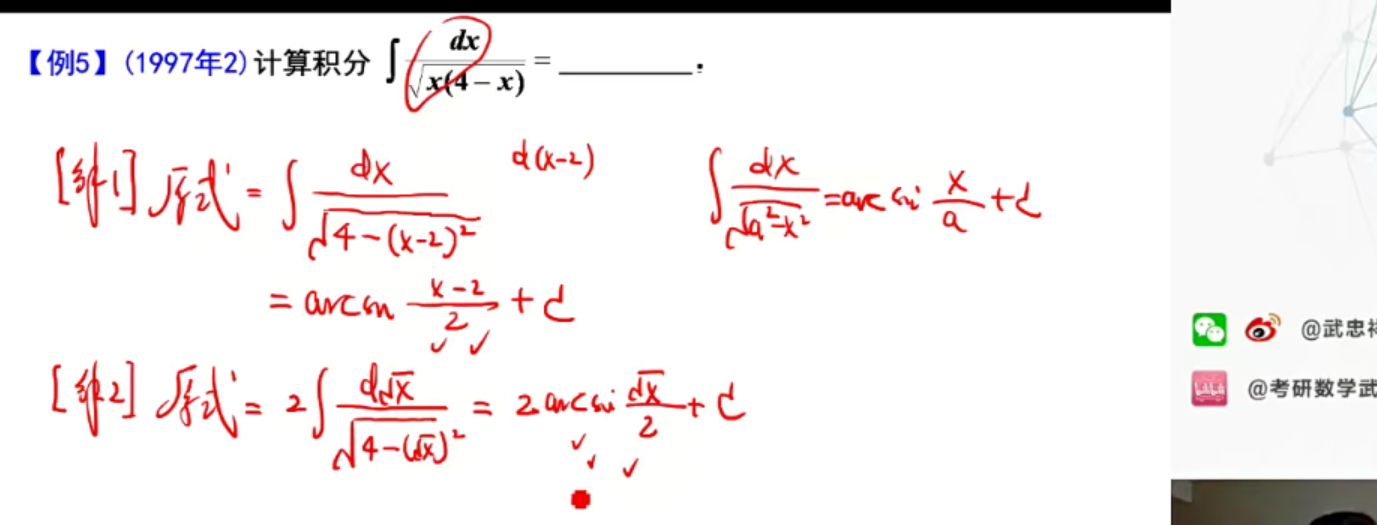 【例5】(1997年2) 计算积分 ∫ dx/√(x(4−x)) = ________.
[解1] 原式 = ∫ dx/√(4−(x−2)²) d(x−2) ∫ dx/√(a²−x²) = arcsin x/a + C
= arcsin (x−2)/2 + C
[解2] 原式 = 2∫ d√x/√(4−(√x)²) = 2 arcsin √x/2 + C
@武忠祥
@考研数学武